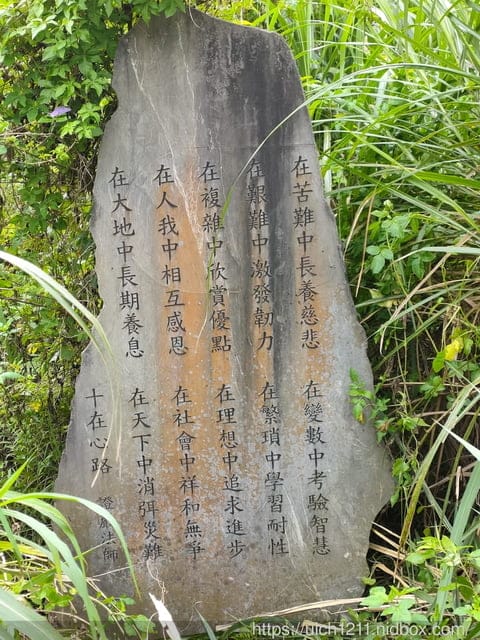 在苦難中長養慈悲 在變數中考驗智慧
在艱難中激發韌力 在繁瑣中學習耐性
在複雜中欣賞優點 在理想中追求進步
在人我中相互感恩 在社會中祥和無爭
在大地中長期養息 在天下中消弭災難
十在心路 證嚴法師
https://uich1211.nidbox.com